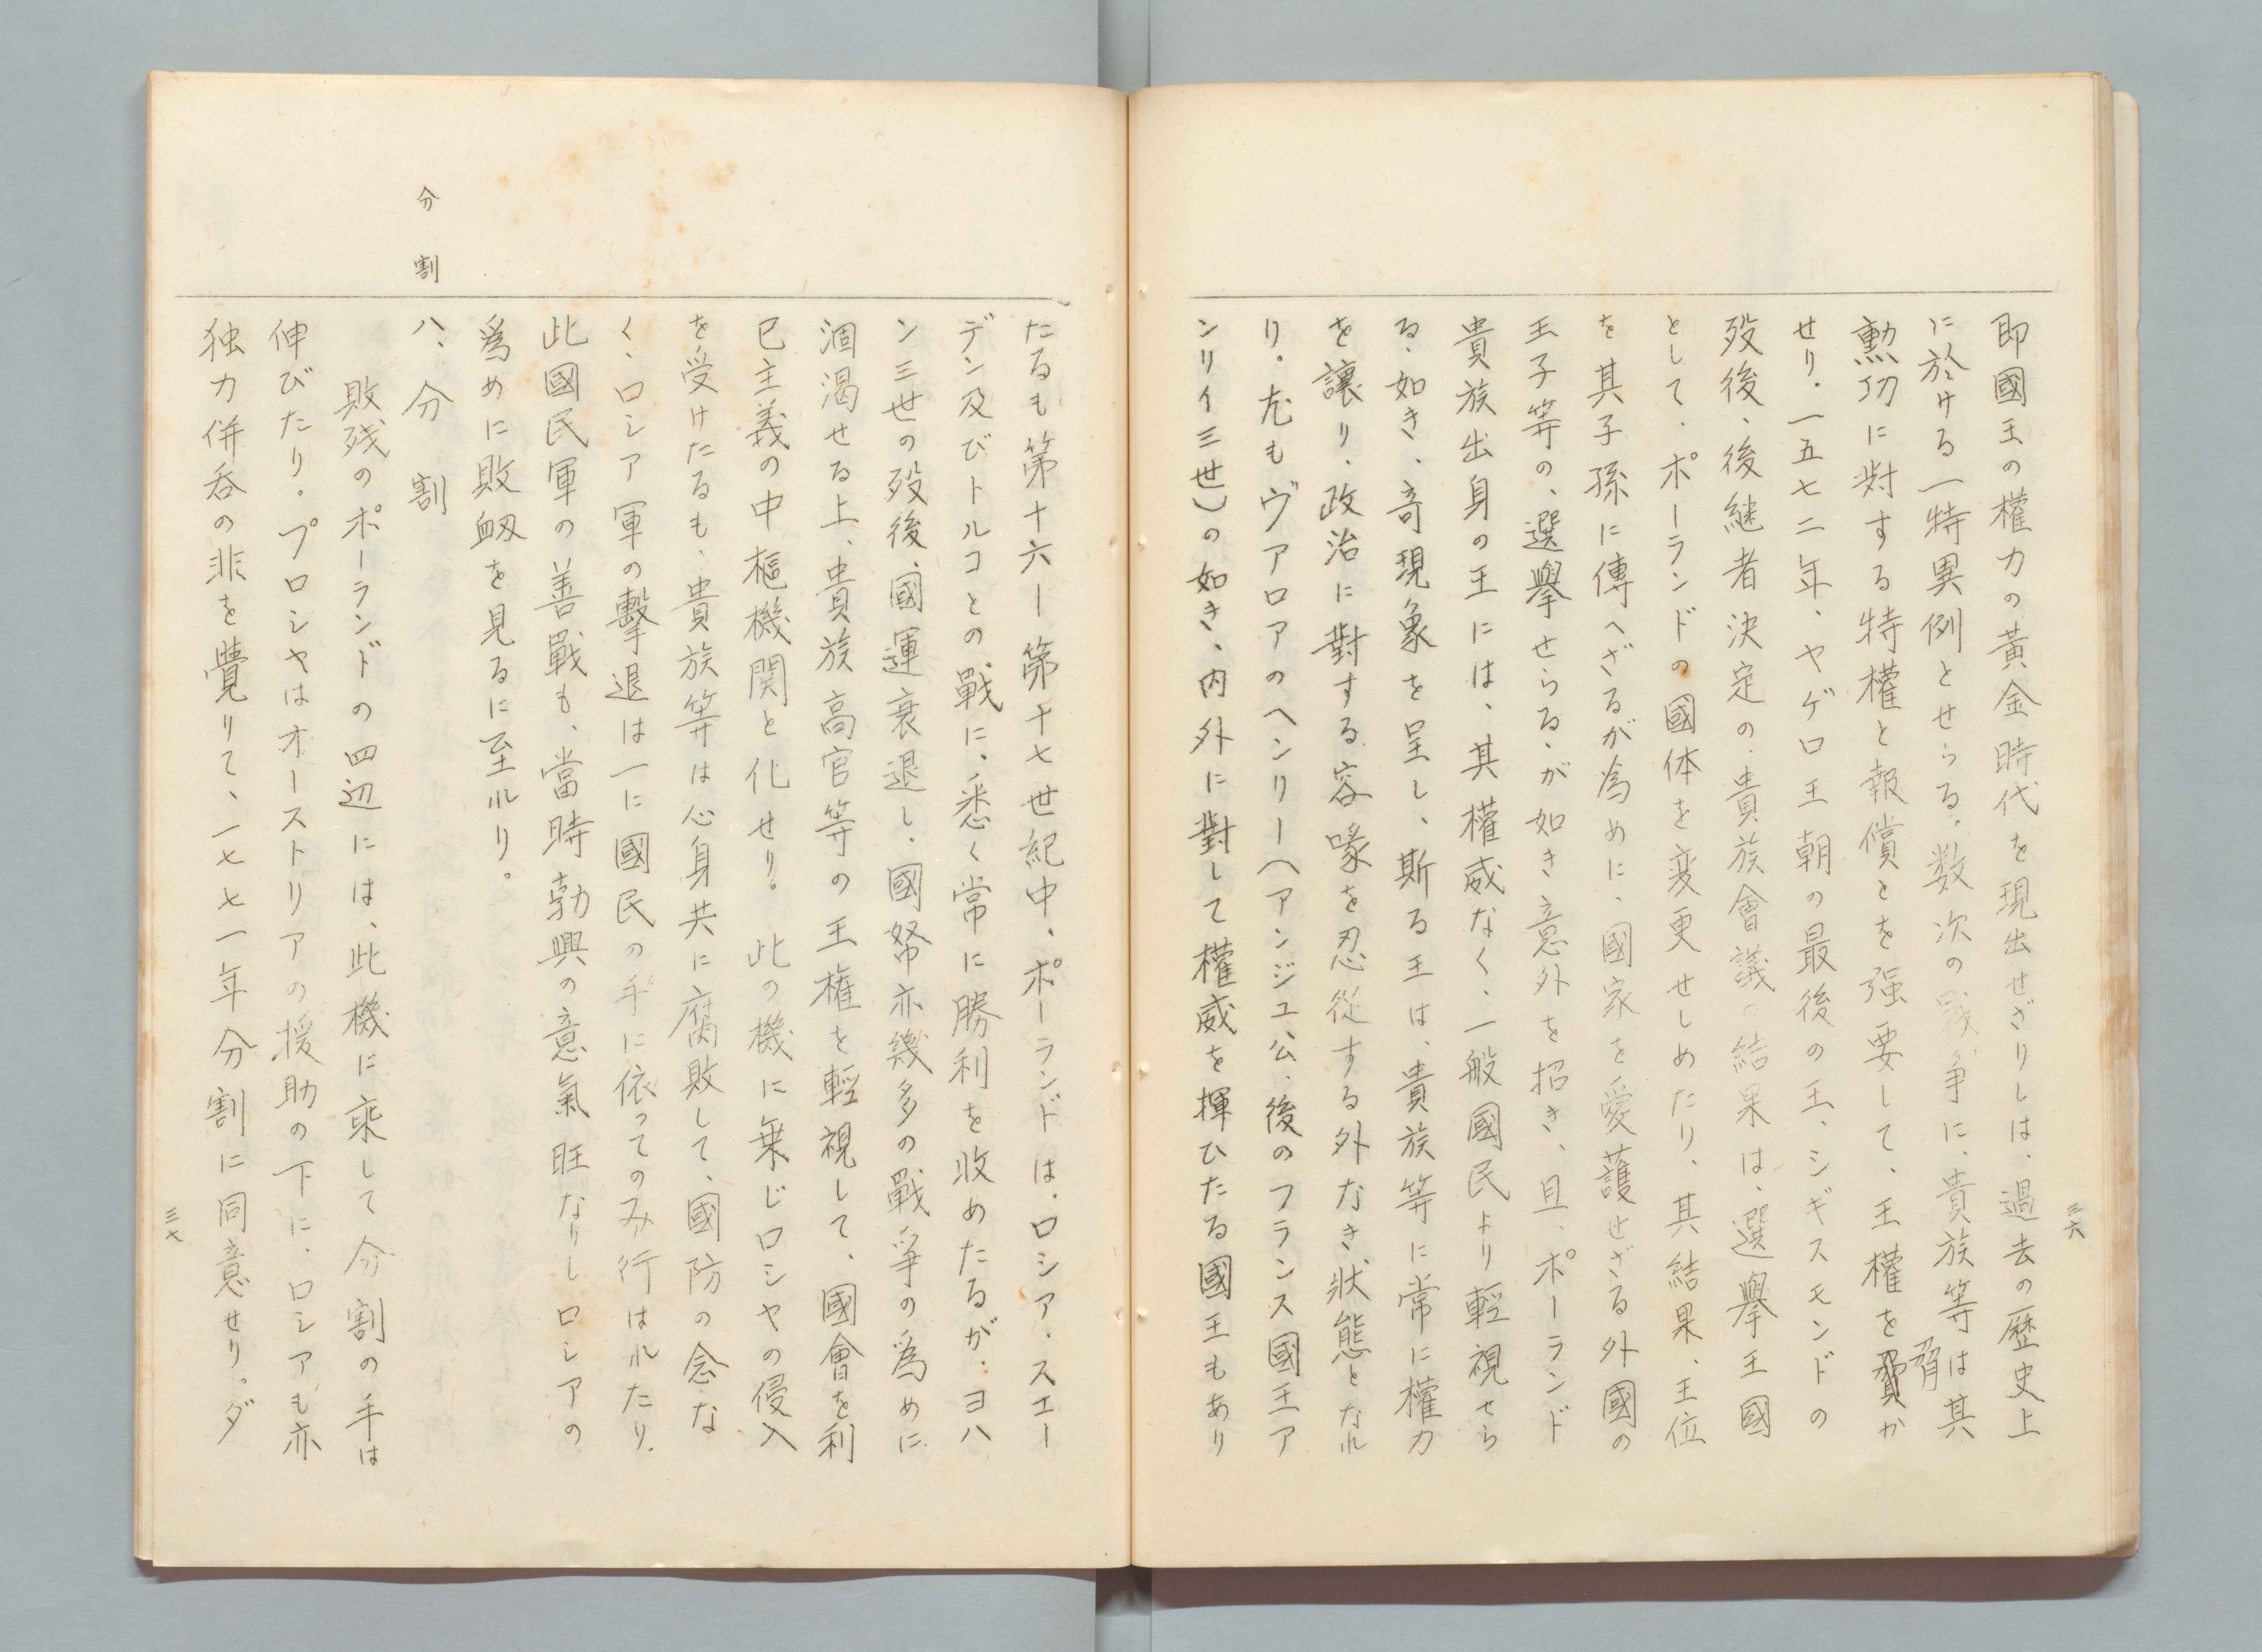 三六
即國王の權力の黃金時代を現出せざりしは、過去の歷史上
に於ける一特異例とせらる。数次の戰爭に、貴族等は其
勲功に対する特權と報償とを强要して、王權を脅か
せり。一五七二年、ヤゲロ王朝の最後の王、シギスモンドの
歿後、後継者決定の貴族會議の結果は、選擧王國
として、ポーランドの國体を変更せしめたり、其結果、王位
を其子孫に傳へざるが為めに、國家を愛護せざる外國の
王子等の、選擧せらるゝが如き意外を招き、且、ポーランド
貴族出身の王には、其權威なく、一般國民より輕視せら
る如き、奇現象を呈し、斯る王は、貴族等に常に權力
を讓り、政治に對する容喙を忍從する外なき狀態となれ
り。尤もヴアロアのヘンリー(アンジュ公、後のフランス國王ア
ンリイ三世)の如き、内外に對して權威を揮ひたる國王もあり
たるも第十六ー第十七世紀中、ポーランドは、ロシア、スエー
デン及びトルコとの戰に、悉く常に勝利を收めたるが、ヨハ
ン三世の歿後、國運衰退し、國帑亦幾多の戰爭の爲めに
涸渴せる上、貴族高官等の王権を輕視して、國會を利
己主義の中樞機関と化せり。此の機に乗じロシヤの侵入
を受けたるも、貴族等は心身共に腐敗して、國防の念な
く、ロシア軍の擊退は一に國民の手に依ってのみ行はれたり。
此國民軍の善戰も、當時勃興の意氣旺なりしロシアの
爲めに敗衂を見るに至れり。
分割
八、分割
敗残のポーランドの四辺には、此機に乘して分割の手は
伸びたり。プロシヤはオーストリアの援助の下に、ロシアも亦
独力併呑の非を覺りて、一七七一年分割に同意せり。ダ
三七